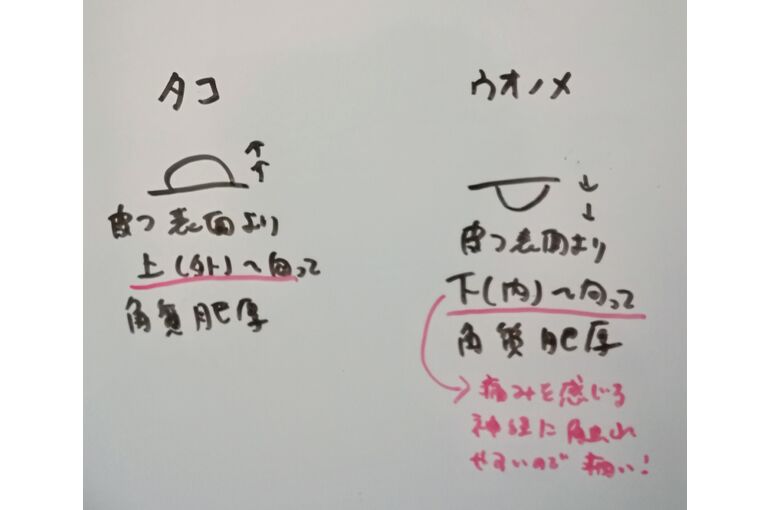 タコ
皮フ表面より
上(外)へ向って
角質肥厚
ウオノメ
皮フ表面より
下(内)へ向って
角質肥厚
痛みを感じる
神経に触れ
やすいので痛い!